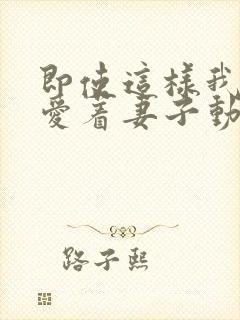 即使這樣我
愛着妻子動
路子熙